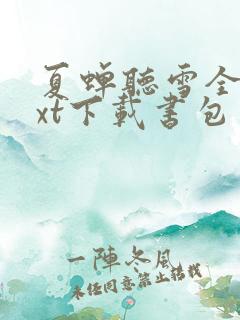 夏蝉聽雪全
xt下載書包
一陣冬風
未经同意禁止转载